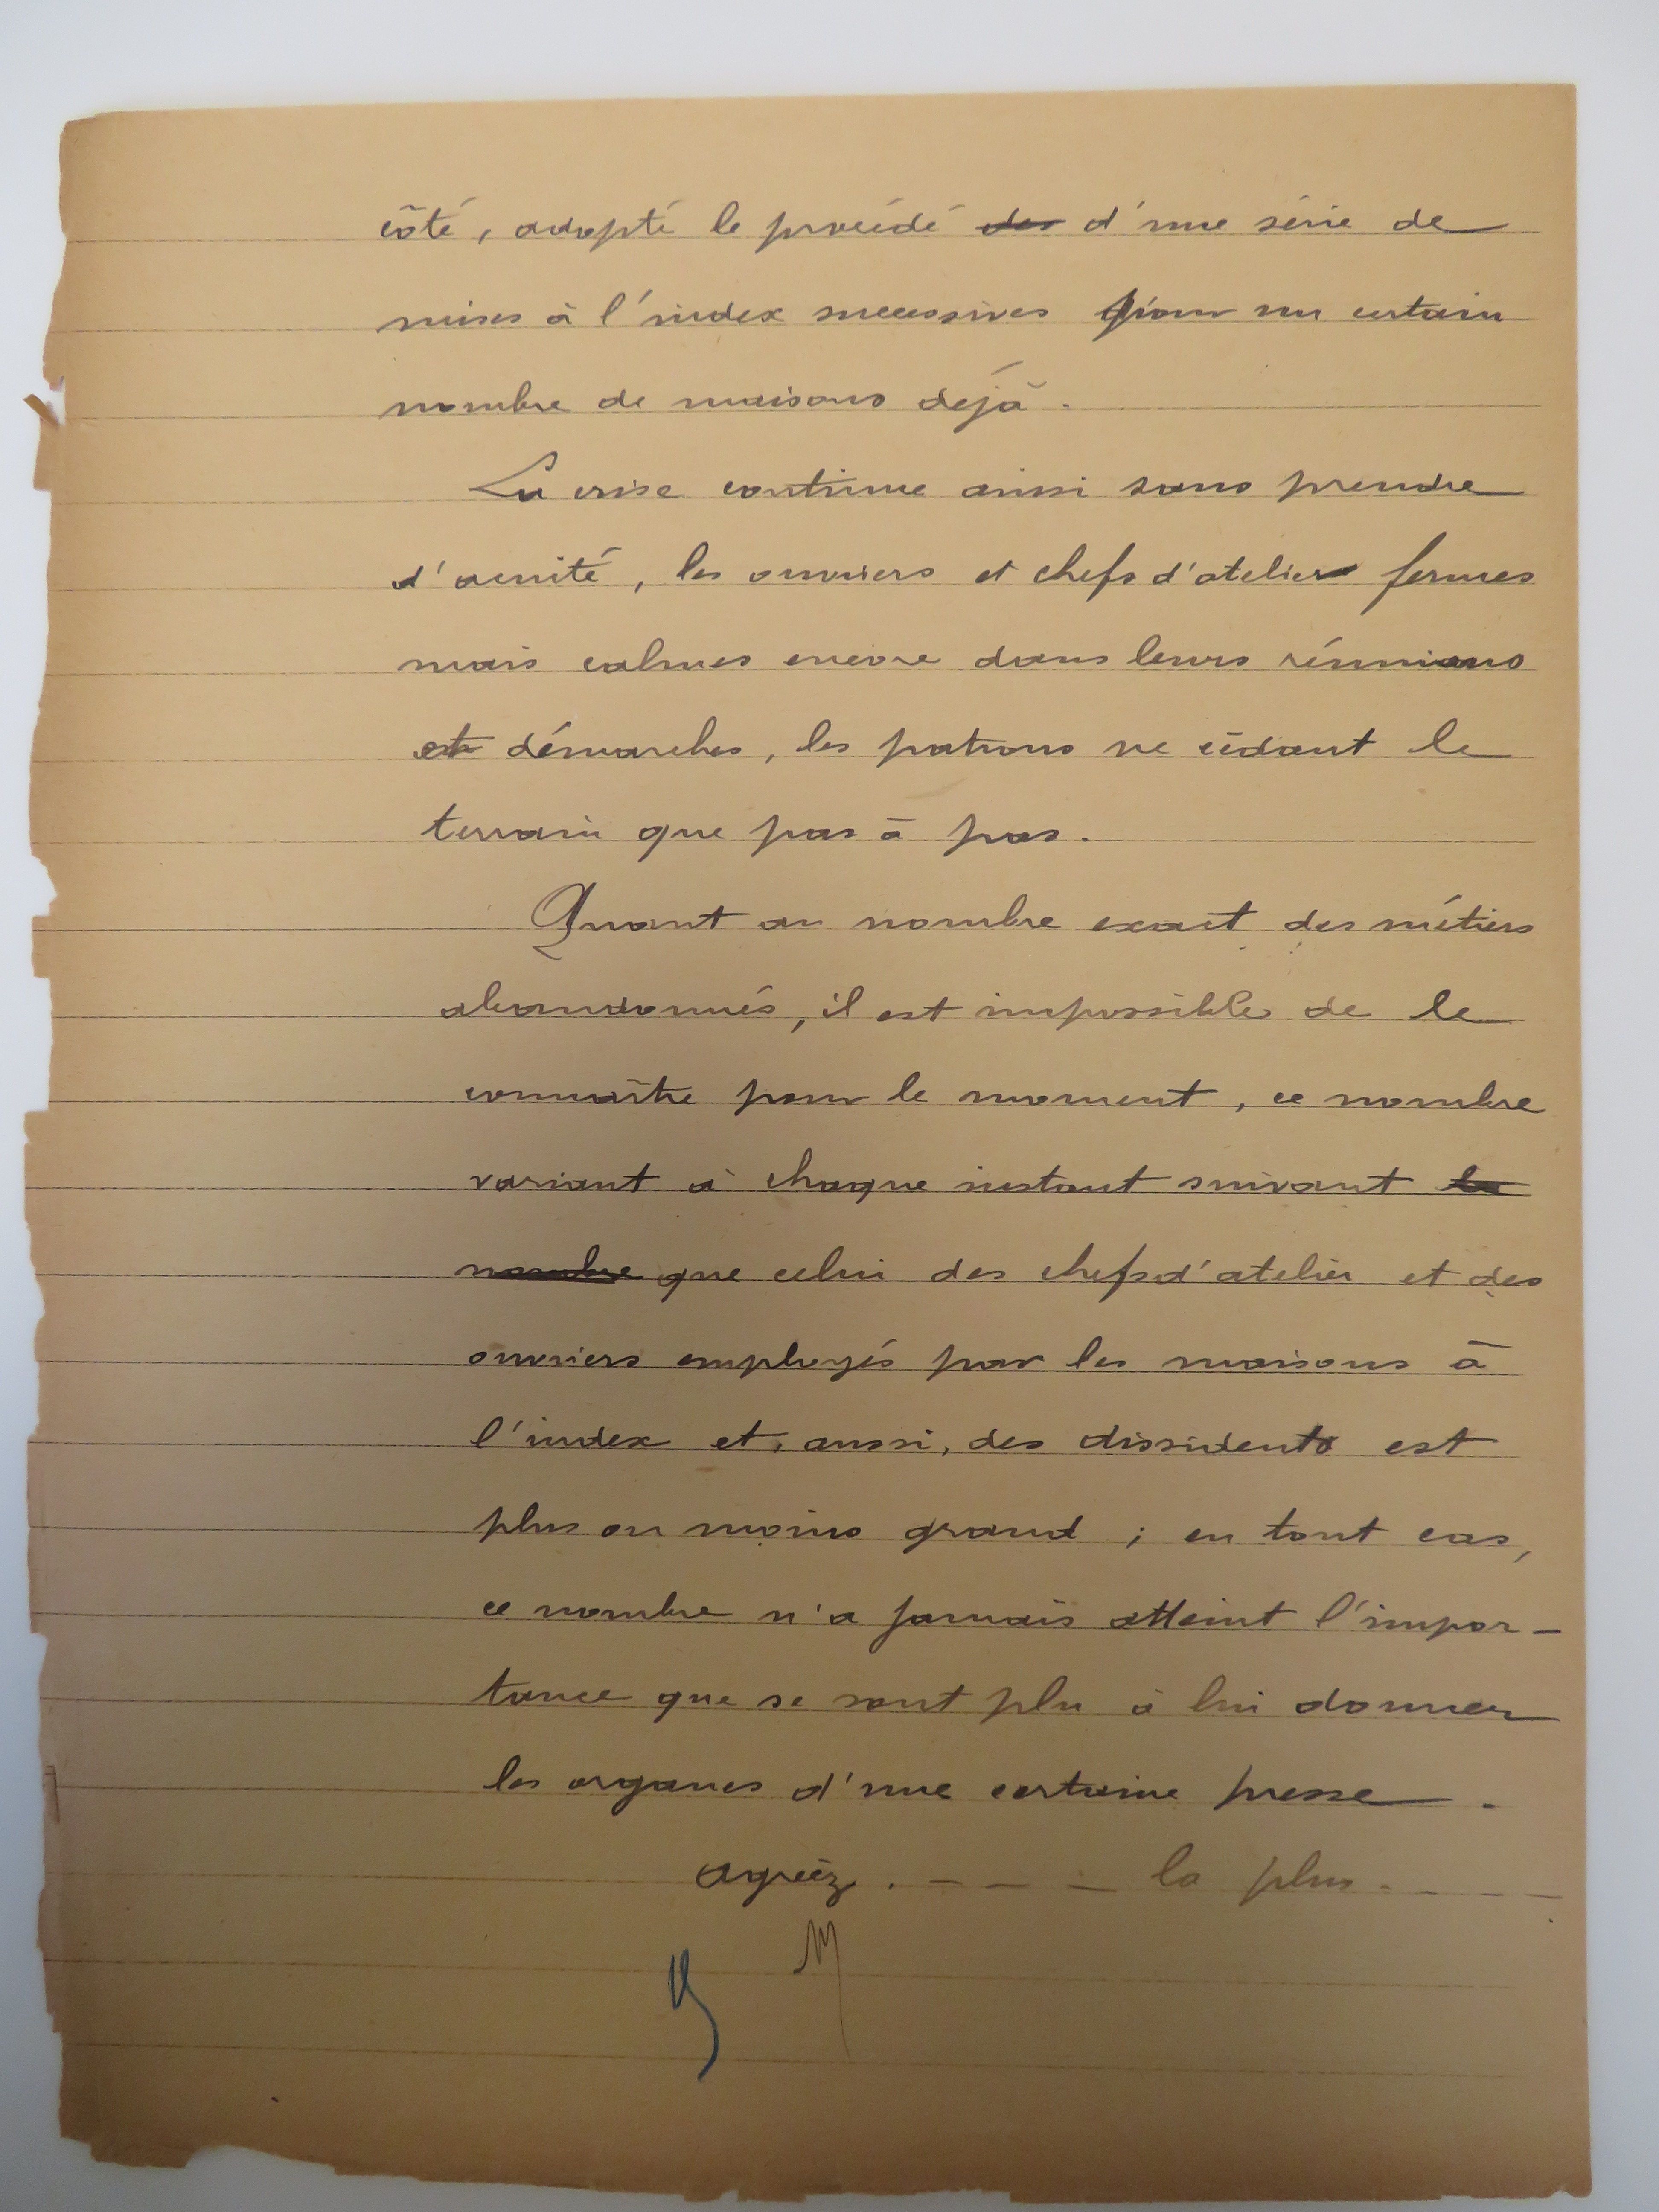 côté, adopté le procédé des d'une série de
mises à l'index successives pour un certain
nombre de maisons déjà.
La crise continue ainsi sans prendre
d'acuité, les ouvriers et chefs d'atelier fermes
mais calmes encore dans leurs réunions
et démarches, les patrons ne cédant le
terrain que pas à pas.
Quant au nombre exact des métiers
abandonnés, il est impossible de le
connaître pour le moment, ce nombre
variant à chaque instant suivant le
nombre que celui des chefs d'atelier et des
ouvriers employés par les maisons à
l'index et, aussi, des dissidents est
plus ou moins grand ; en tout cas,
ce nombre n'a jamais atteint l'impor-
tance que se sont plu à lui donner
les organes d'une certaine presse.
Agréez . - - - la plus - - - -
M